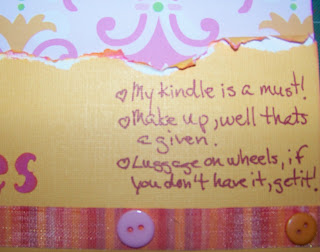 ♡ My kindle is a must!
♡ Make up, well thats
a given.
♡ Luggage on wheels, if
you don't have it, get it!
es